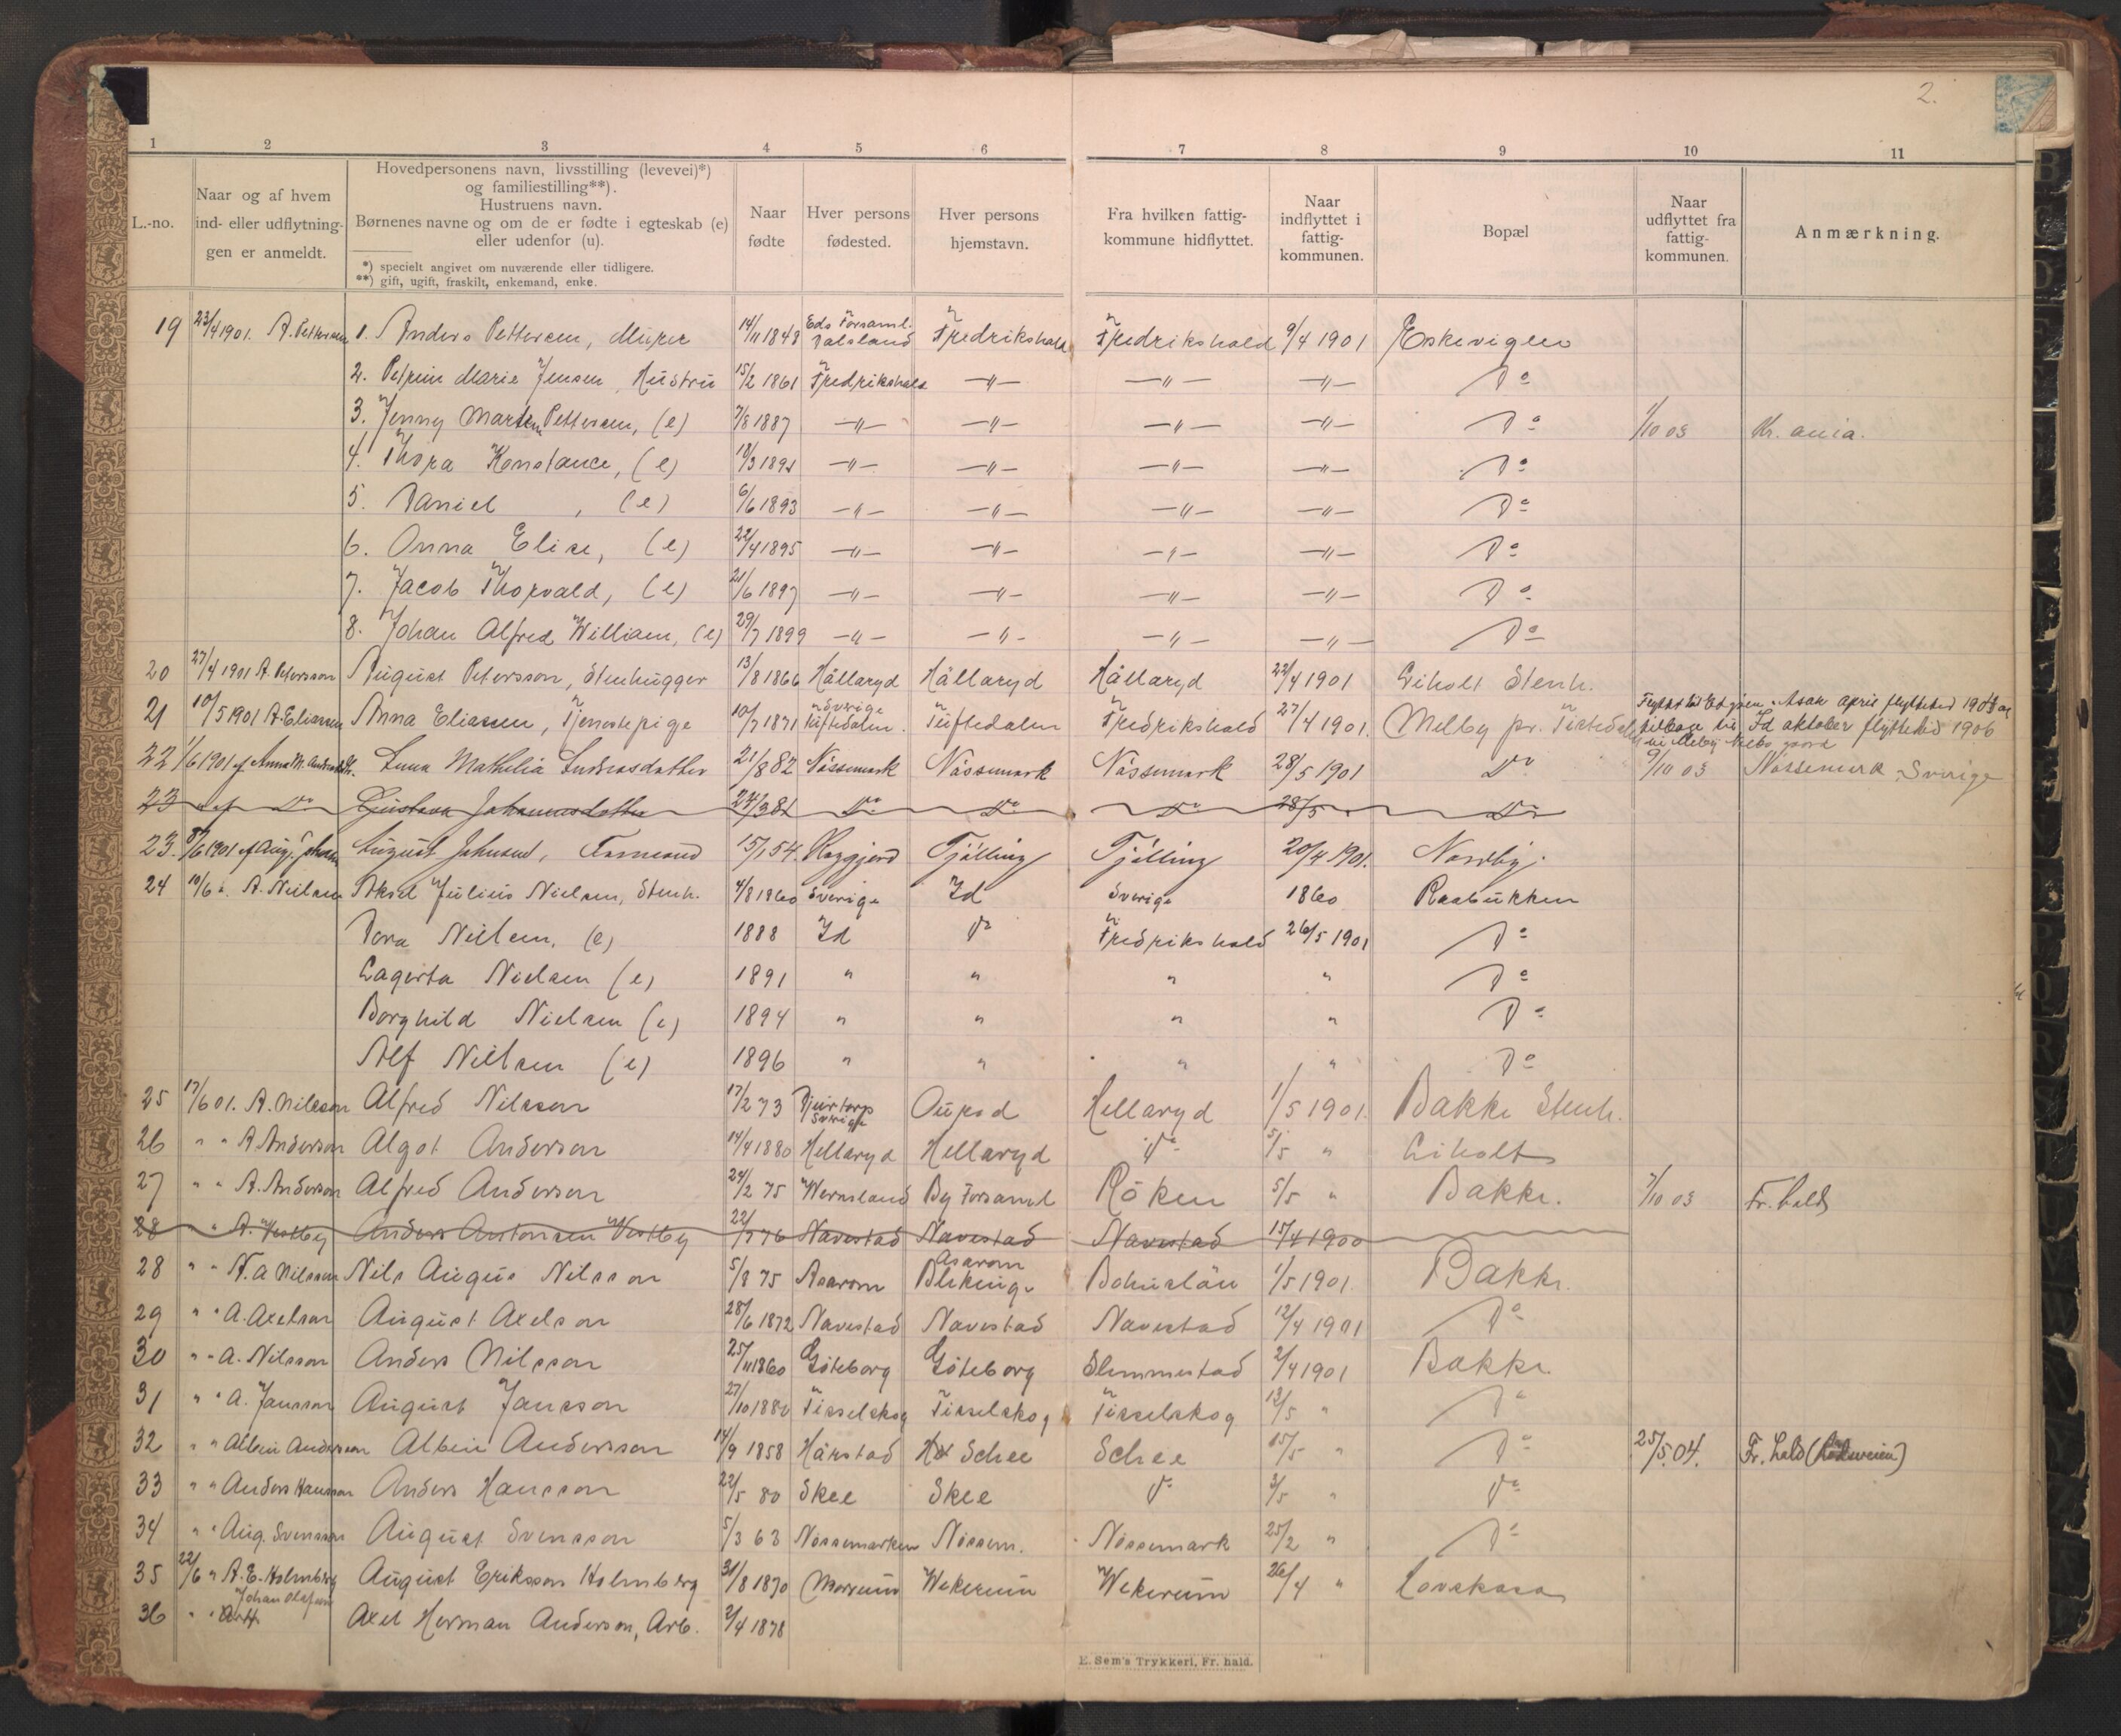 2.
1 2 3 4 5 6 7 8 9 10 11
L.-no.
Naar og af hvem
ind- eller udflytnin-
gen er anmeldt.
Hovedpersonens navn, livsstilling (levevei)*)
og familiestilling**).
Hustruens navn.
Børnenes navne og om de er fødte i egteskab (e)
eller udenfor (u).
*) specielt angivet om nuværende eller tidligere.
**) gift, ugift, fraskilt, enkemand, enke.
Naar
fødte
Hver persons
fødested.
Hver persons
hjemstavn.
Fra hvilken fattig-
kommune hidflyttet.
Naar
indflyttet i
fattig-
kommunen.
Bopæl
Naar
udflyttet fra
fattig-
kommunen.
Anmærkning.
19 23/4 1901. A. Pettersen 1. Anders Pettersen, Murer 14/11 1848 Eds Forsaml. Dalsland Fredrikshald Fredrikshald 9/4 1901 Eskevigen
2. Marie Jensen, Hustru 15/2 1861 Fredrikshald —"— —"— —"— Do
3. Jenny Pettersen, (e) 7/8 1887 —"— —"— —"— —"— Do 1/10 03 Kr.ania.
4. Thora Konstance, (e) —"— —"— —"— —"— Do
5. Daniel, (e) 6/6 1893 —"— —"— —"— —"— Do
6. Anna Elise, (e) 22/4 1895 —"— —"— —"— —"— Do
7. Jacob Thorvald, (e) 21/6 1897 —"— —"— —"— —"— Do
8. Johan Alfred William, (e) 29/7 1899 —"— —"— —"— —"— Do
20 27/4 1901 A. Petersson August Petersson, Stenhugger 13/8 1866 Hällaryd Hällaryd Hällaryd 22/4 1901 Liholt Stenh.
21 10/5 1901 A. Eliassen Anna Eliassen, Tjenestepige 10/7 1871 Tuftedalen. Sverige Tuftedalen Fredrikshald 27/4 1901. Melby pr. Tistedalen april flyttede tilbage til Id oktober flyttede 1906
22 1/6 1901 af Anna M. Mathilia 21/8 82 Nössemark Nössemark Nössemark 28/5 1901 Do 9/10 03 Nössemark, Sverige
23 " af Do Gustava Johannesdatter Do Do Do 28/5 Do
23. 8/6 1901 af Aug. Johnsen August Johnsen, 15/1 54. Tjölling Tjölling 20/4 1901. Nordby.
24 10/6 " A. Nielsen Aksel Julius Nielsen, Stenh. 4/8 1860 Sverige Id Sverige 1860 Raabukken
Dora Nielsen, (e) 1888 Id Do Fredrikshald 26/5 1901 Do
Lagerta Nielsen (e) 1891 " " " " Do
Borghild Nielsen (e) 1894 " " " " Do
Alf Nielsen (e) 1896 " " " " Do
25 17/6 01. A. Nilsson Alfred Nilsson 17/2 73 Sverige Hellaryd 1/5 1901. Bakke Stenh.
26 " " A. Anderson Algot Anderson 14/4 1880 Hellaryd Hellaryd Do 5/5 " Liholt
27 " " A. Anderson Alfred Anderson 24/2 75 Wermland By Forsaml Röken 5/5 " Bakke. 7/10 03 Fr.hald
28 " A. Vestby Anders Antonsen Vestby Navestad Navestad Navestad 15/4 1900
28 " " N. A Nilsson Nils August Nilsson 5/8 75 Asarom Asarom Blekinge Bohuslän 1/5 1901. Bakke.
29 " " A. Axelson August Axelson 28/6 1872 Navestad Navestad Navestad 12/4 1901 Do
30 " " A. Nilsson Anders Nilsson 25/11 1860 Göteborg Göteborg Slemmestad 2/4 1901 Bakke
31 " " A. Jansson August Jansson 27/10 1880 Tisselskog Tisselskog Tisselskog 13/5 " Do
32 " " Albin Andersson Albin Andersson 14/9 1858 Hárstad Schee Schee 15/5 " Do 25/5 04. Fr.hald
33 " " Anders Hansson Anders Hansson 22/5 80 Skee Skee Do 3/5 " Do
34 " " Aug. Svensson August Svensson 5/3 63 Nössemarken Nössem. Nössemark 25/2 " Do
35 22/6 " A. E. Holmberg August Eriksson Holmberg 31/8 1870 Wekerum Wekerum 26/4 " Lovskasa
36 " " Johan Olafsen Axel Herman Anderson, Arb. 2/4 1878
E. Sem's Trykkeri, Fr.hald.